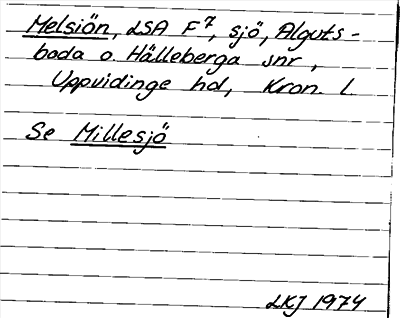 Melsiön, LSA F7, sjö, Alguts-
boda o. Hälleberga snr,
Uppvidinge hd, Kron. l.
Se Millesjö
LKJ 1974